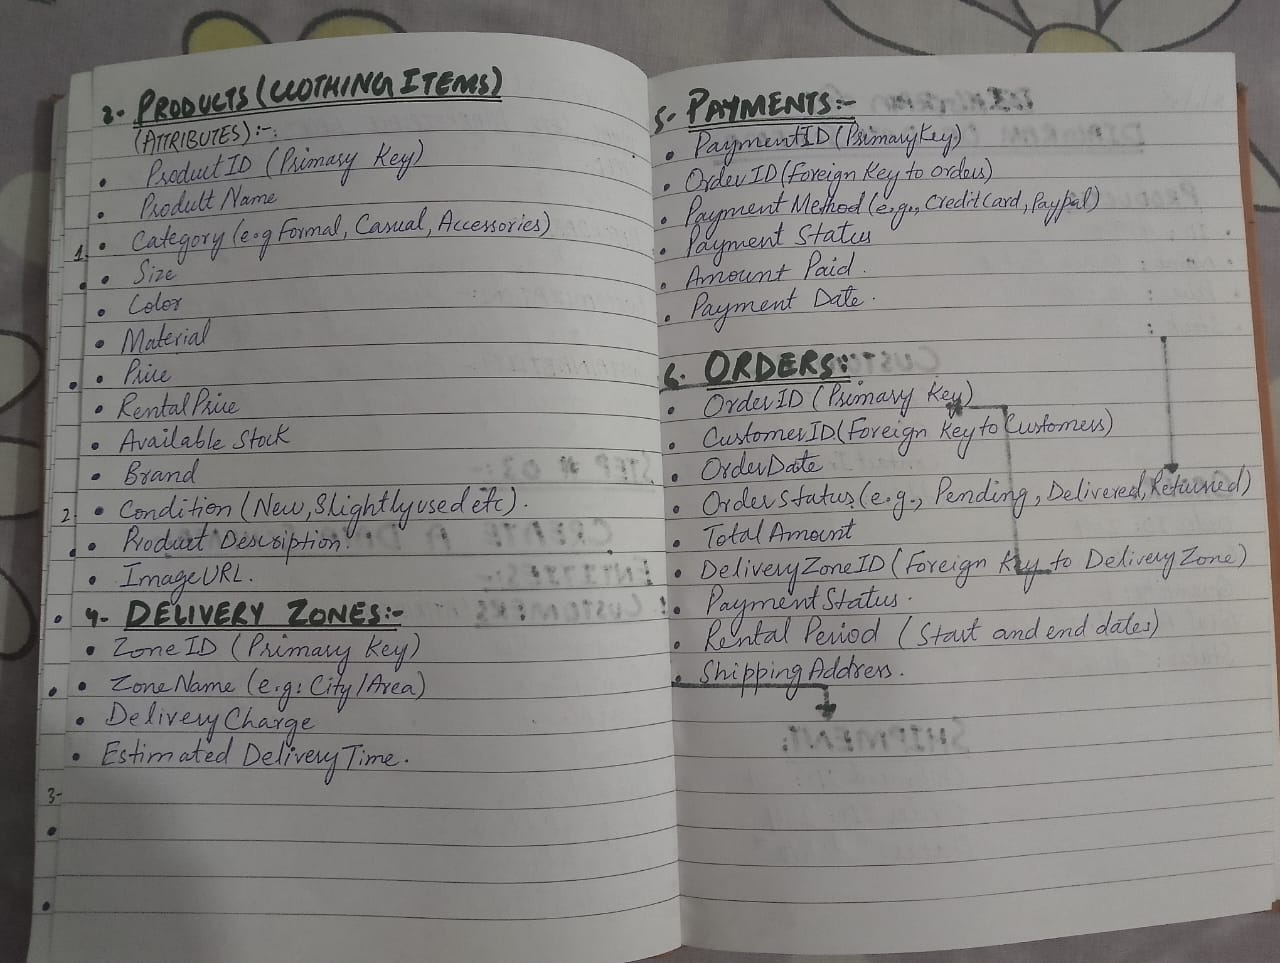 3- PRODUCTS (CLOTHING ITEMS)
(ATTRIBUTES):-
• Product ID (Primary Key)
• Product Name
• Category (e.g Formal, Casual, Accessories)
• Size
• Color
• Material
• Price
• Rental Price
• Available Stock
• Brand
• Condition (New, Slightly used etc).
• Product Description.
• Image URL.
4- DELIVERY ZONES:-
• Zone ID (Primary Key)
• Zone Name (e.g: City/Area)
• Delivery Charge
• Estimated Delivery Time.
1.
2-
3-
5- PAYMENTS:-
• Payment ID (Primary Key)
• Order ID (Foreign Key to orders)
• Payment Method (e.g., Credit Card, Paypal)
• Payment Status
• Amount Paid.
• Payment Date.
6. ORDERS:-
• Order ID (Primary Key)
• Customer ID (Foreign Key to Customers)
• Order Date
• Order Status (e.g., Pending, Delivered, Returned)
• Total Amount
• Delivery Zone ID (Foreign Key to Delivery Zone)
• Payment Status.
• Rental Period (Start and end dates)
• Shipping Address.